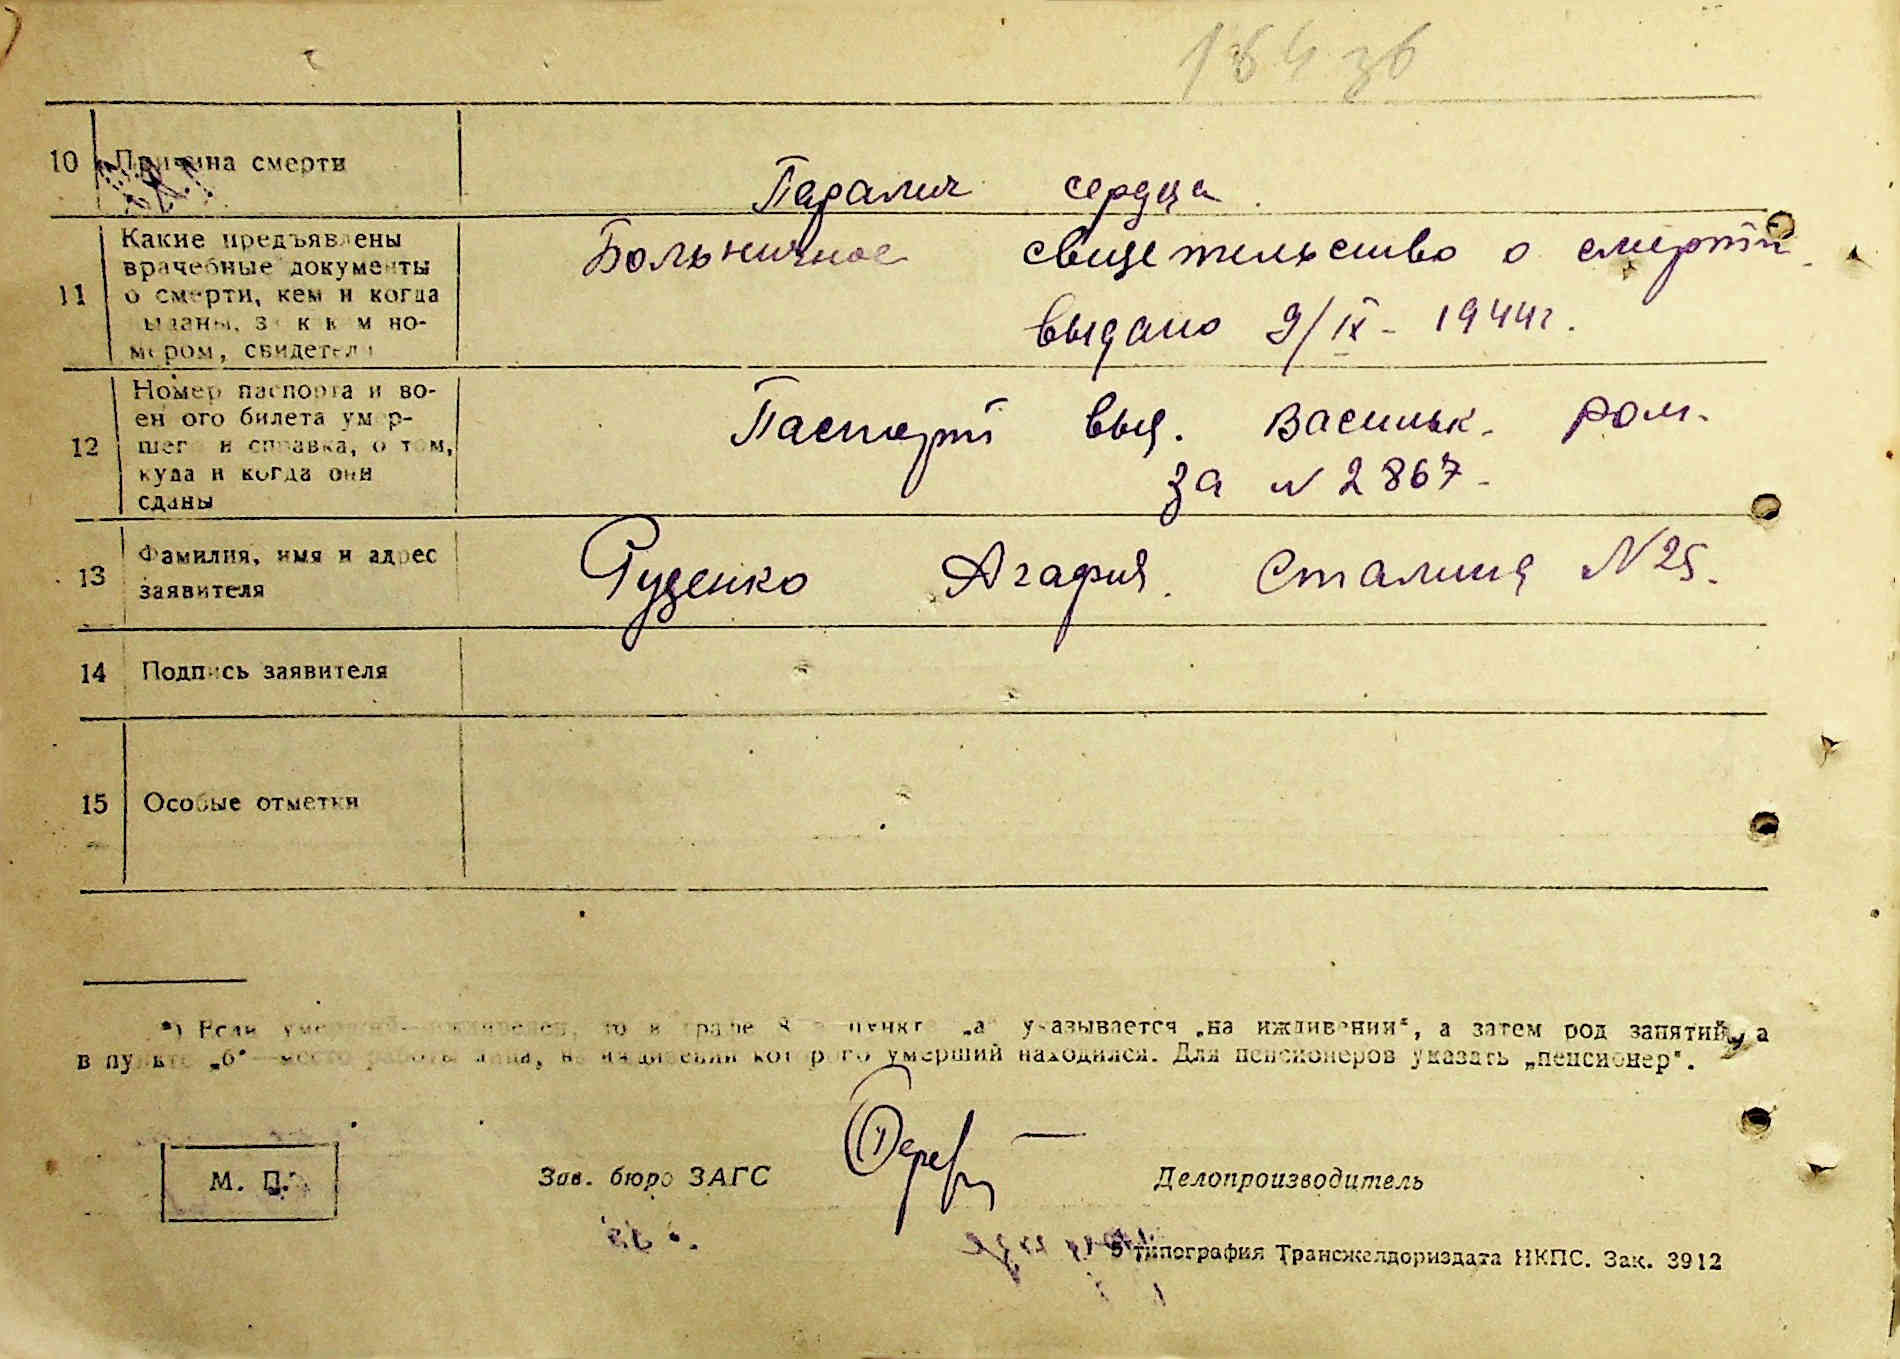 10 Причина смерти
Паралич сердца.
11 Какие предъявлены
врачебные документы
о смерти, кем и когда
выданы, за каким но-
мером, свидетели
Больничное свидетельство о смерти
выдано 9/IX - 1944г.
12 Номер паспорта и во-
енного билета умер-
шего и справка, о том,
куда и когда они
сданы
Паспорт выд. Васильк. ром.
за N 2867.
13 Фамилия, имя и адрес
заявителя
Руденко Агафия. Сталина N 25.
14 Подпись заявителя
15 Особые отметки
*) Если умерший иждивенец, то в графе 8 в пункте „а“ указывается „на иждивении“, а затем род занятий, а
в пункте „б“ место работы лица, на иждивении которого умерший находился. Для пенсионеров указать „пенсионер“.
М. П.
Зав. бюро ЗАГС
Делопроизводитель
типография Трансжелдориздата НКПС. Зак. 3912